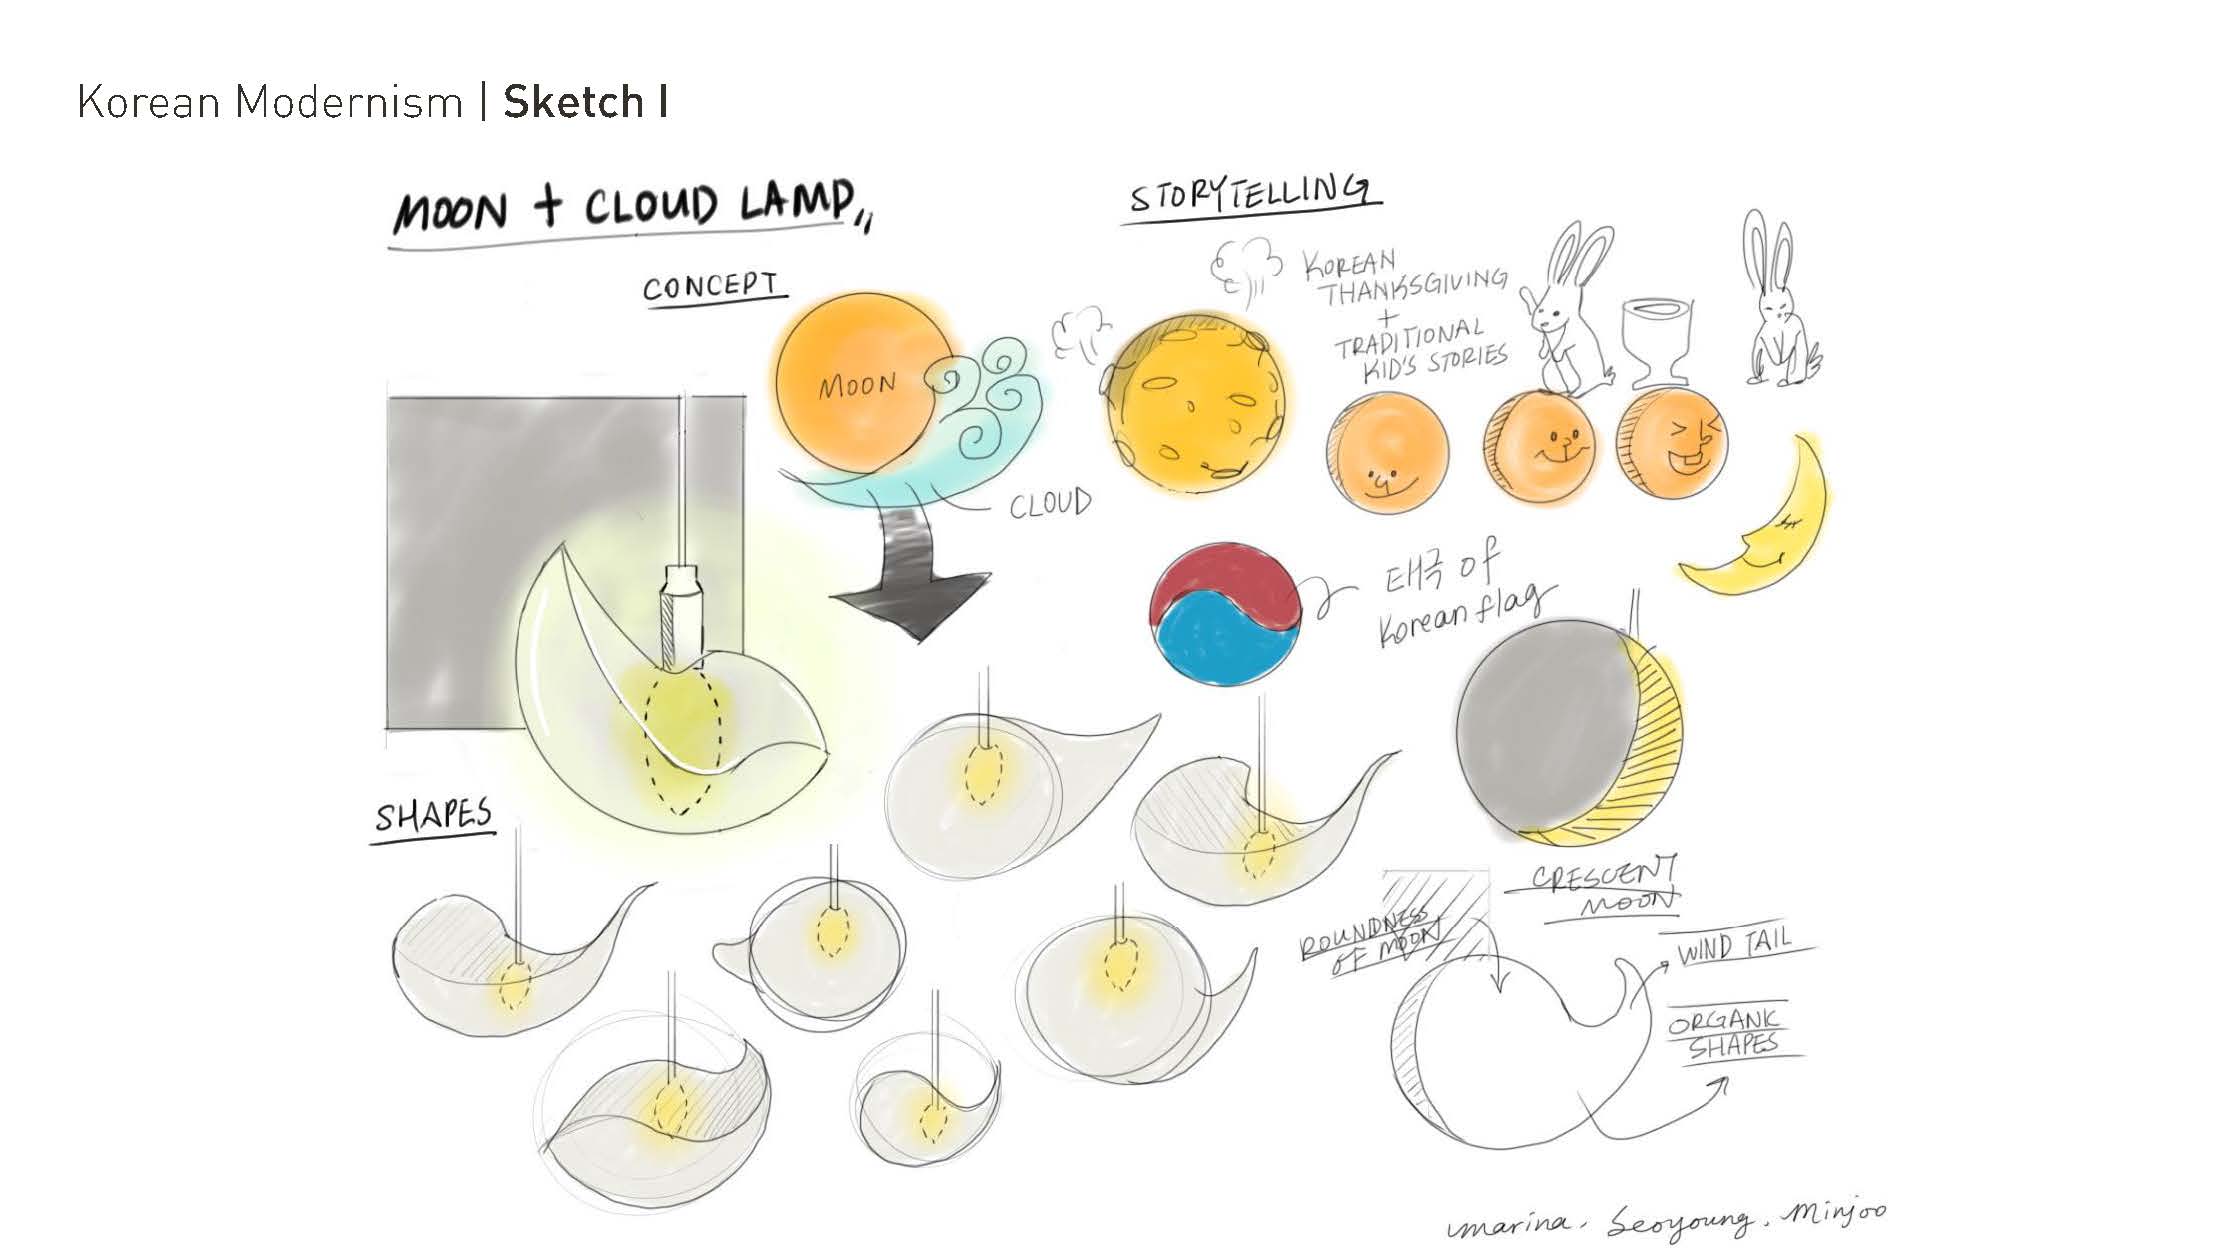 Korean Modernism | Sketch I
MOON + CLOUD LAMP
CONCEPT
MOON
CLOUD
STORYTELLING
KOREAN
THANKSGIVING
+
TRADITIONAL
KID'S STORIES
태극 of
Korean flag
SHAPES
CRESCENT
MOON
ROUNDNESS
OF MOON
WIND TAIL
ORGANIC
SHAPES
marina. Seoyoung. Minjoo